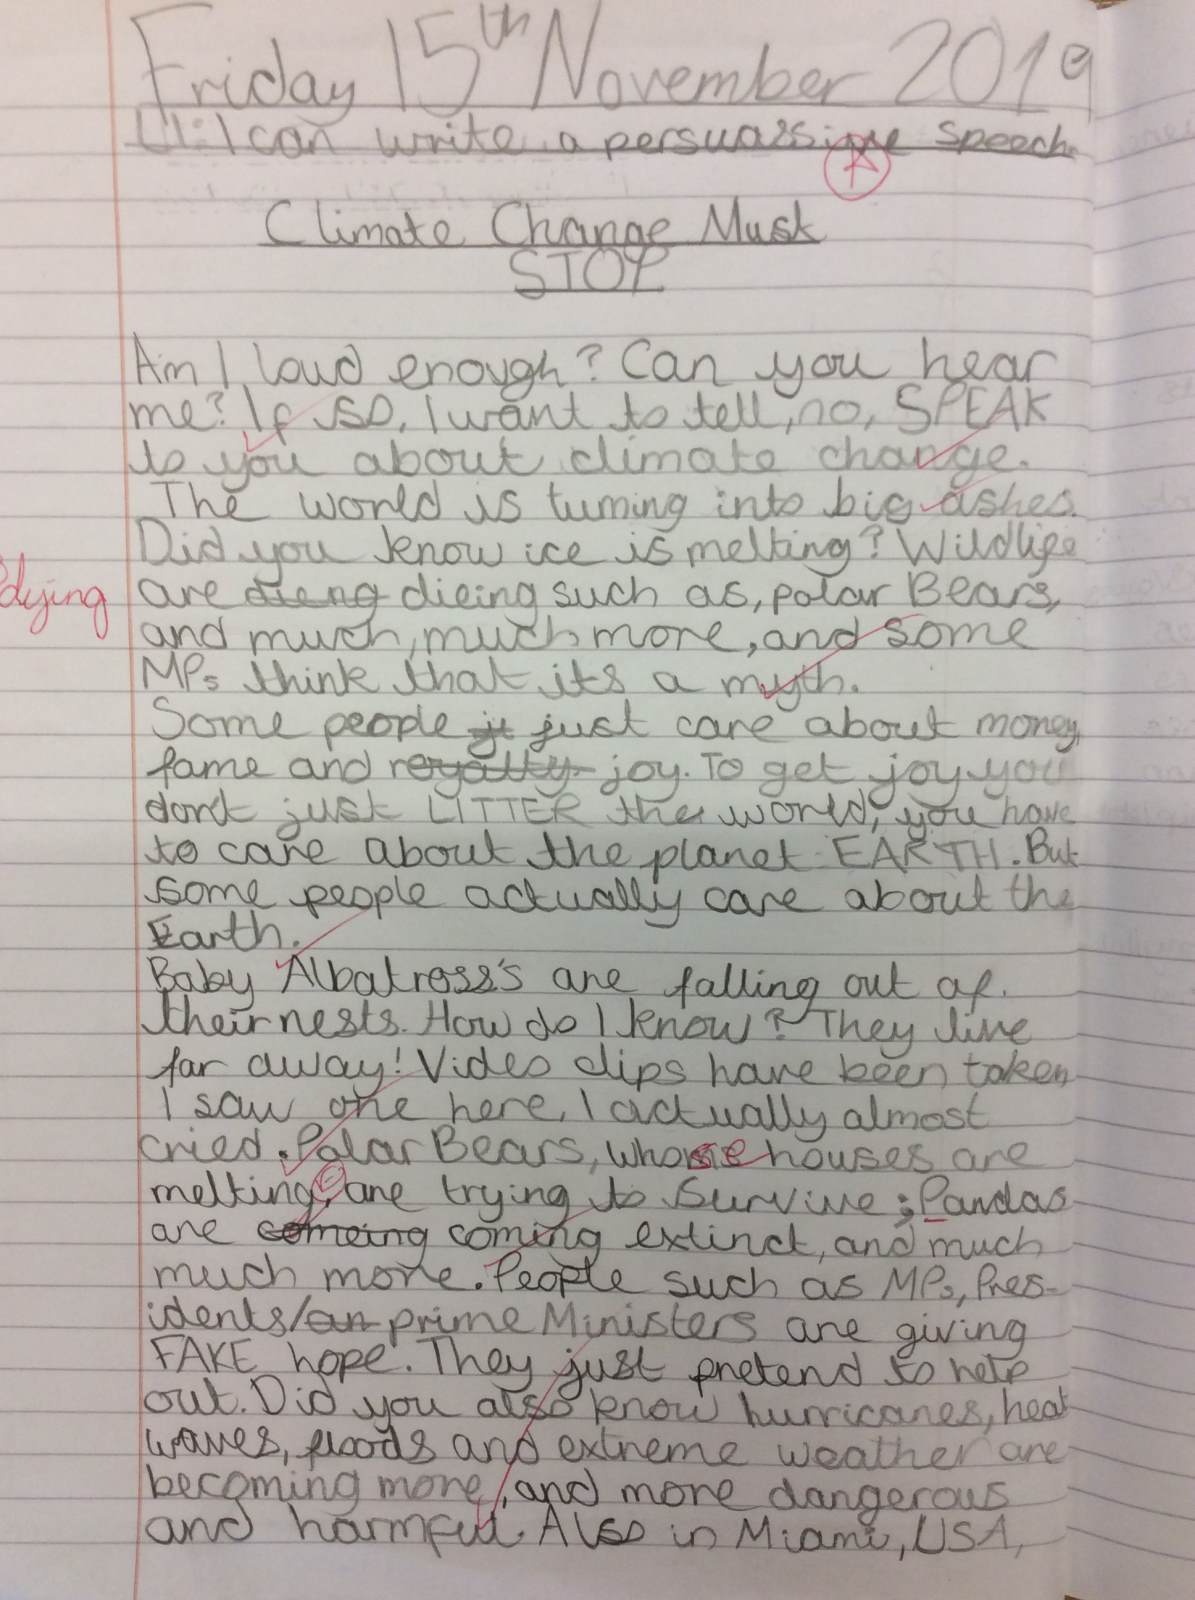 Friday 15th November 2019
LI: I can write a persuassive speech
Climate Change Must
STOP
Am I loud enough? Can you hear
me? If so, I want to tell, no, SPEAK
to you about climate change.
The world is turning into big ashes.
Did you know ice is melting? Wildlife
dying
are dieng dieing such as, polar Bears,
and much, much more, and some
MPs think that its a myth.
Some people jt just care about money,
fame and royallty joy. To get joy you
dont just LITTER the world, you have
to care about the planet EARTH. But
some people actually care about the
Earth.
Baby Albatross's are falling out of
their nests. How do I know? They live
far away! Video clips have been taken
I saw one here, I actually almost
cried. Polar Bears, whose houses are
melting, are trying to survive; Pandas
are comeing coming extinct, and much
much more. People such as MPs, Pres-
idents/an prime Ministers are giving
FAKE hope. They just pretend to help
out. Did you also know hurricanes, heat
waves, floods and extreme weather are
becoming more, and more dangerous
and harmful. Also in Miami, USA,